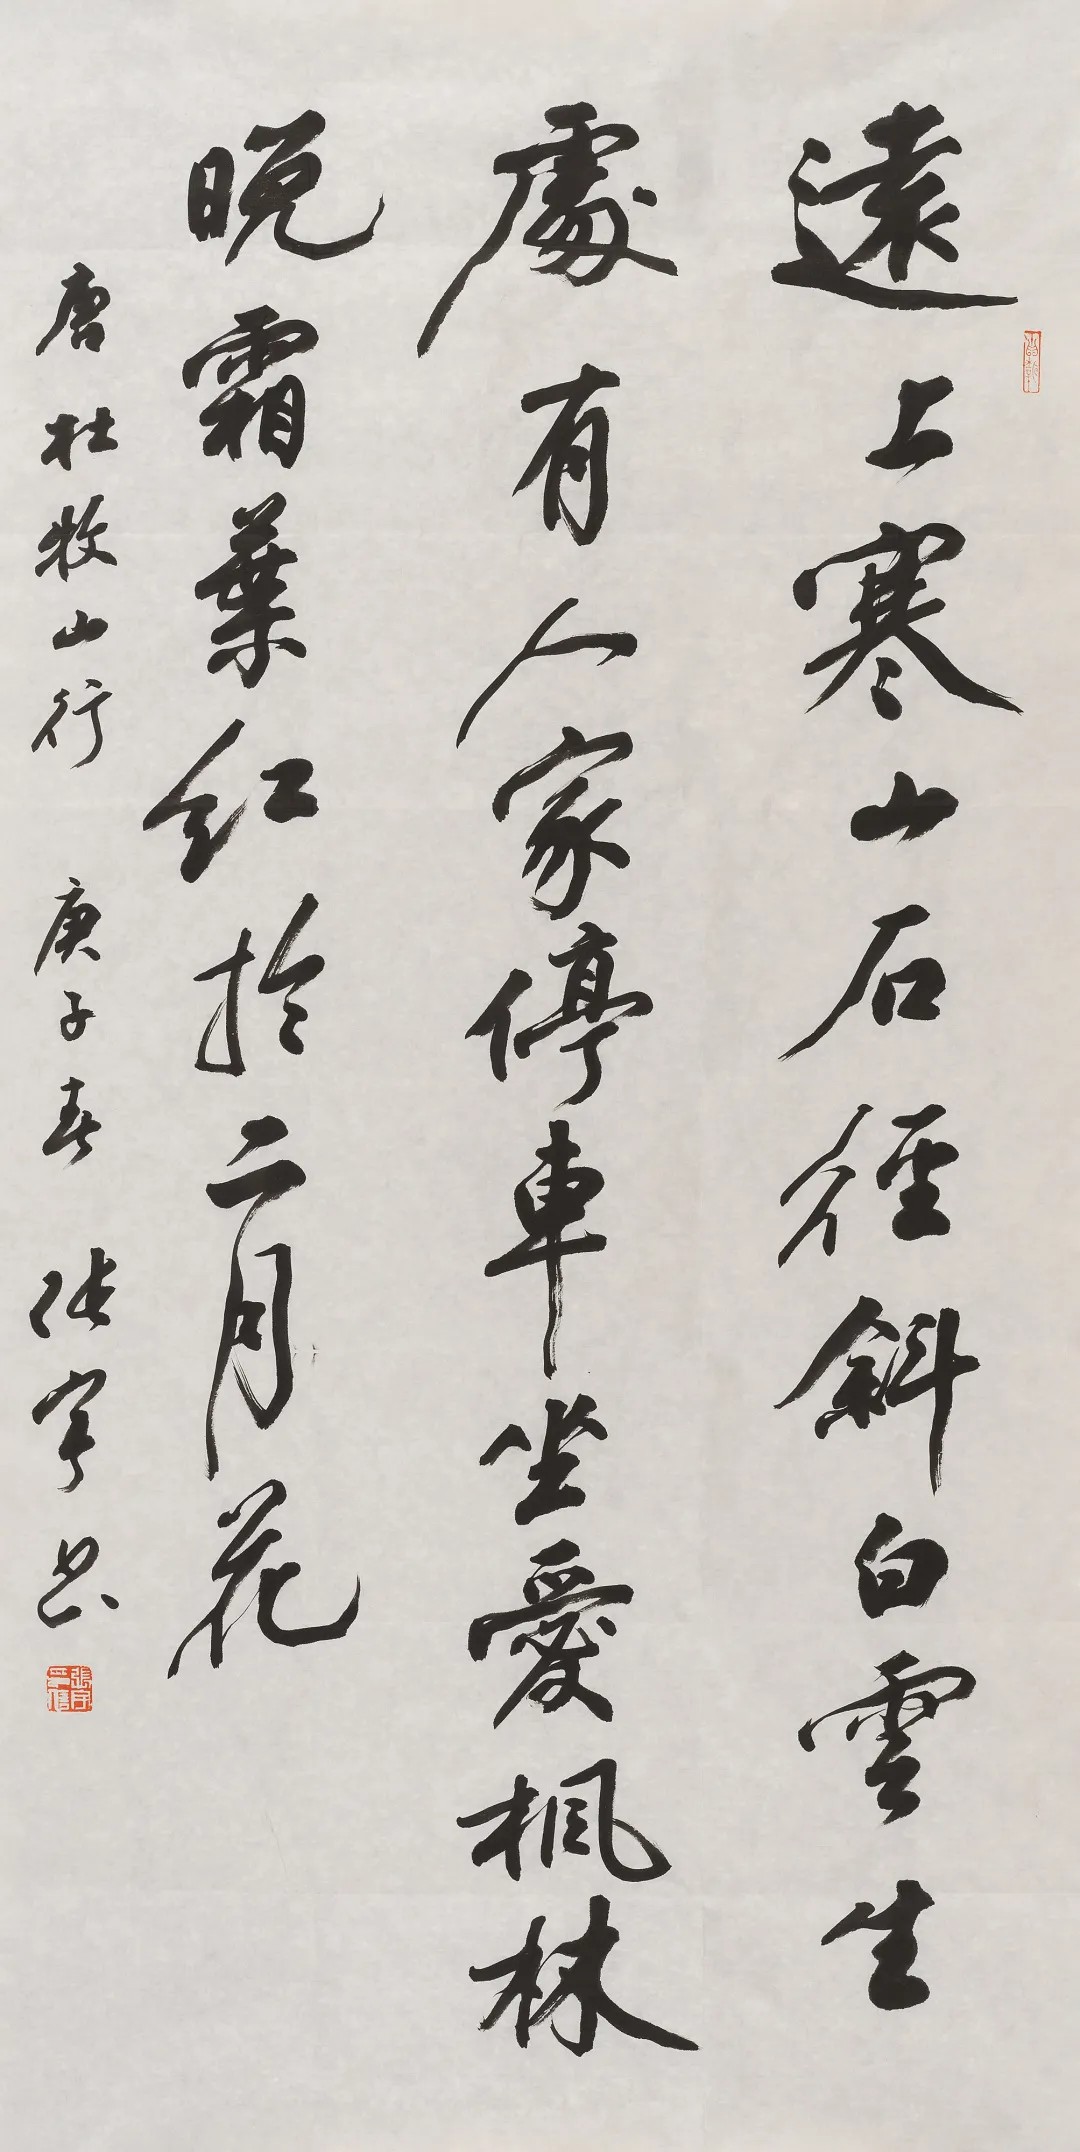 遠上寒山石徑斜白雲生
處有人家停車坐愛楓林
晚霜葉紅於二月花
唐杜牧山行 庚子春 張宇書
張宇印信